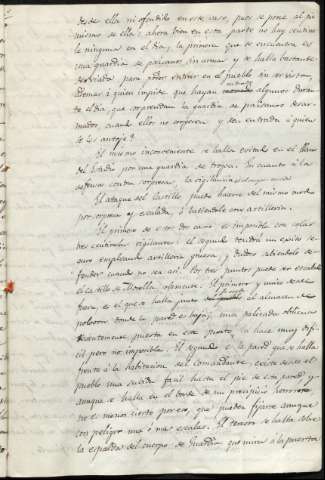 desde ella ni ofendido en este caso, pues se pone al pie
mismo de ella; ahora bien en esta parte no hay centine
la ninguna en el dia, la primera que se encuentra es
una guardia de paisanos sin armas y se halla bastante
desviada para poder entrar en el pueblo sin ser vistos.
Demas á quien impide que hayan entrado algunos duran
te el dia, que sorprendan la guardia de paisanos desar-
mados, cuando ellos no lo piensen y den entrada á quien
se les antoje?
El mismo inconveniente se halla evitado en el
por una guardia de tropa. En cuanto á la
contra sorpresa, la vigilancia
El ataque del castillo puede hacerse del mismo modo
por sorpresa y escalada, ó batiendole con artilleria.
El primero de estos dos casos es imposible con celar
des centinelas vigilantes: el segundo tendrá un exito se-
guro empleando artilleria gruesa, y dudoso sabiendole de-
fender cuando no sea asi. Por tres puntos puede ser escalado
el castillo de Morella solamente. El primero y mas
es el que se halla junto al almacen de
polvora, donde la pared es baja; una palizada oblicua
puesta en este punto, la hace muy difi-
cil pero no imposible. El segundo es la pared que se halla
frente á la habitacion del comandante, existe desde el
pueblo una subida facil hasta el pie de esta pared y
aunque se halla en el borde de un precipicio horroroso
no es menos cierto por eso, que pueden fijarse aunque
con peligro una ó mas escalas. El tercero se halla sobre
la espalda del cuerpo de Guardia que mira á la puerta